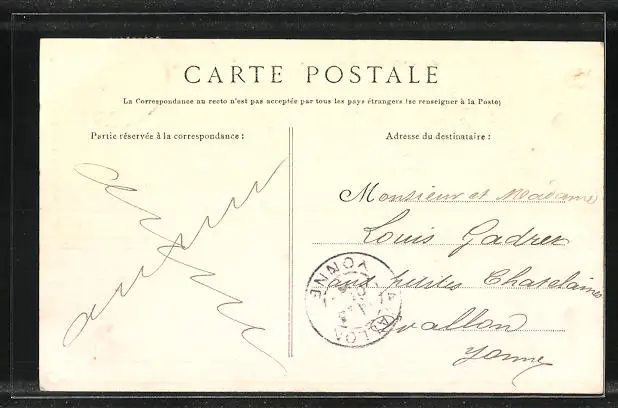 CARTE POSTALE
La Correspondance au recto n'est pas acceptée par tous les pays étrangers (se renseigner à la Poste)
Partie réservée à la correspondance :
Adresse du destinataire :
Monsieur et Madame
Louis
petites Chatelaines
Avallon
Yonne
AVALLON
YONNE